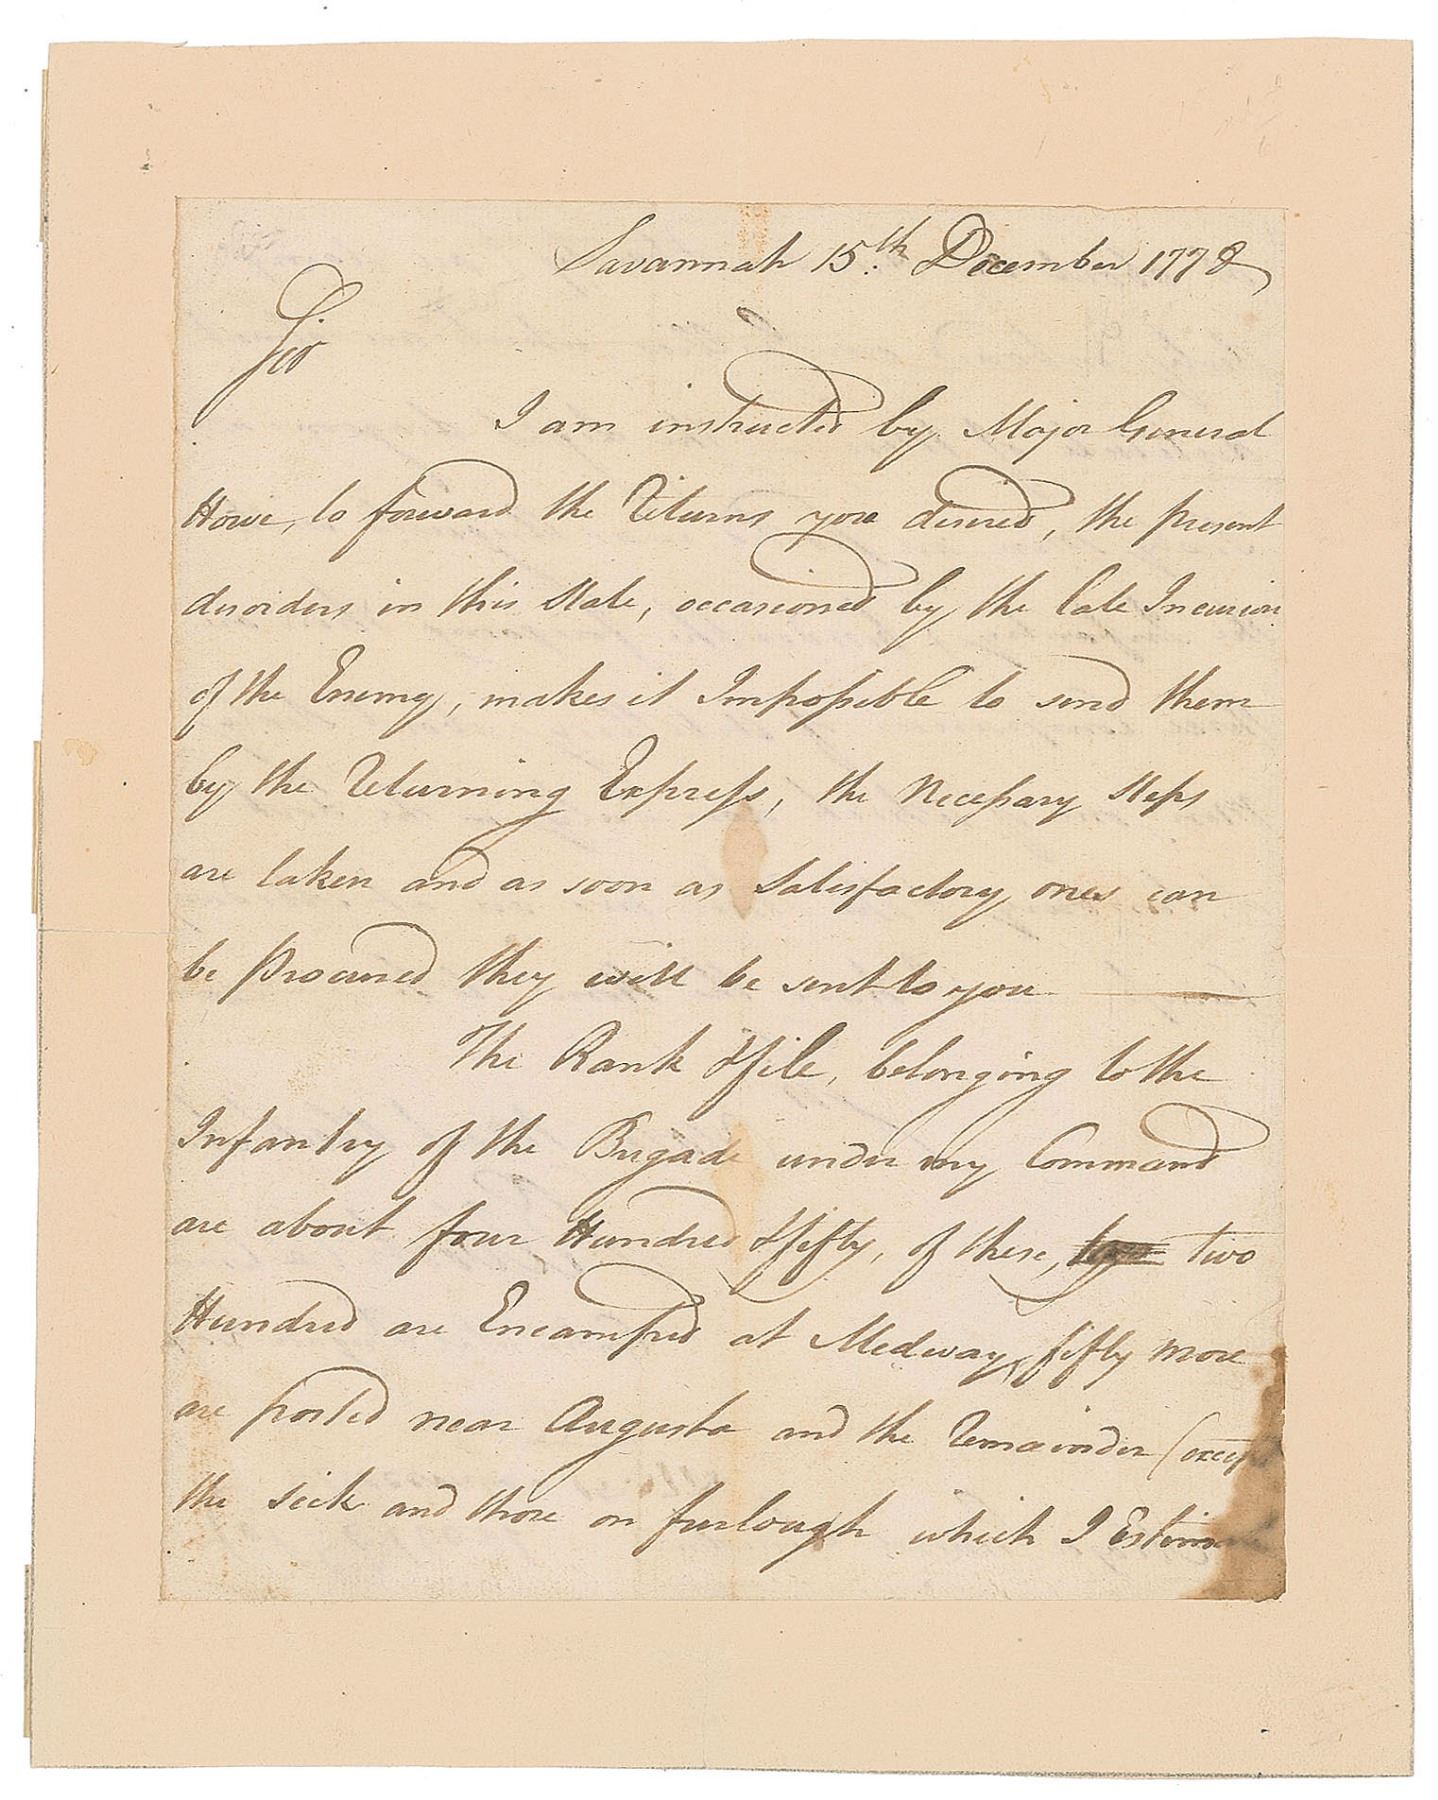 Savannah 15.th December 1778
Sir
I am instructed by Major General
Howe, to forward the Returns you desired, the present
disorders in this State, occasioned by the late Incursion
of the Enemy, makes it Impossible to send them
by the Returning Express, the Necessary Steps
are taken and as soon as Satisfactory ones can
be Procured they will be sent to you
The Rank & file, belonging to the
Infantry of the Brigade under my Command
are about four Hundred & fifty, of these, two
Hundred are Encamped at Medway, fifty more
are posted near Augusta and the Remainder (except
the sick and those on furlough which I Estimate